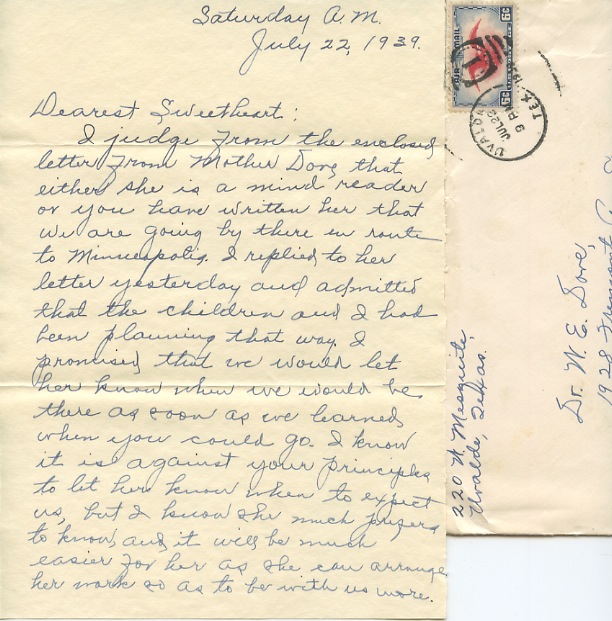 Saturday A.M.
July 22, 1939.
Dearest Sweetheart:
I judge from the enclosed
letter from Mother Dove, that
either she is a mind reader
or you have written her that
we are going by there in route
to Minneapolis. I replied to her
letter yesterday and admitted
that the children and I had
been planning that way. I
promised that we would let
her know when we would be
there as soon as we learned
when you could go. I know
it is against your principles
to let her know when to expect
us, but I know she much prefers
to know, and it will be much
easier for her as she can arrange
her work so as to be with us more.
AIR MAIL
6¢ 6¢
UVALDE
JUL 22
9 PM
TEX.
220 N Mesquite
Uvalde, Texas.
Dr. W. E. Dove
1928